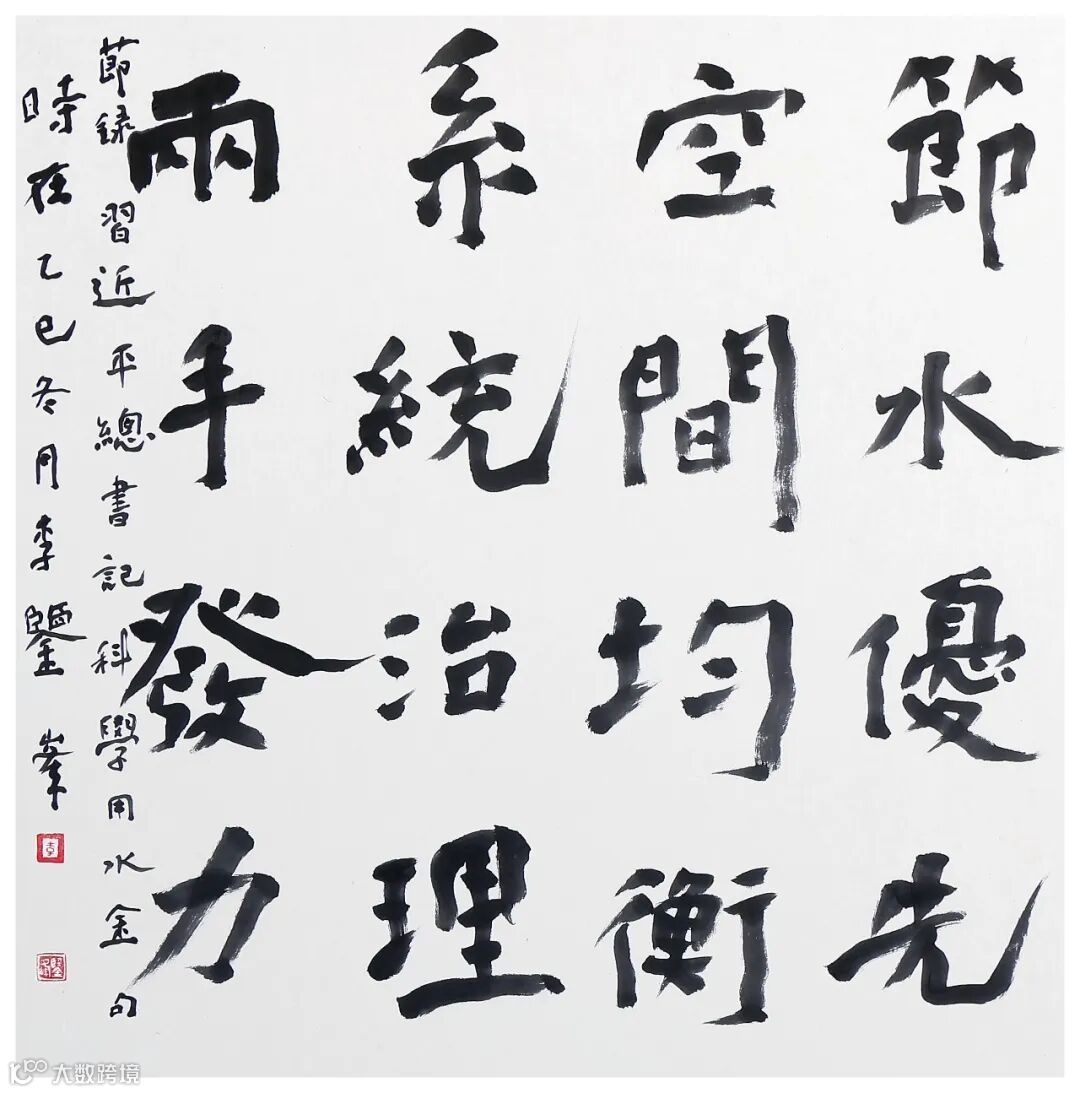 節水優先
空間均衡
系統治理
兩手發力
節錄習近平總書記科學用水金句
時在乙巳冬月李鑒峯
李
大数跨境